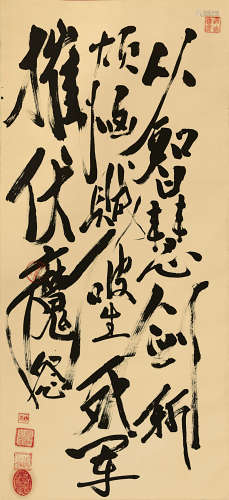 以智慧劍斬
煩惱賊破生死軍
摧伏魔怨